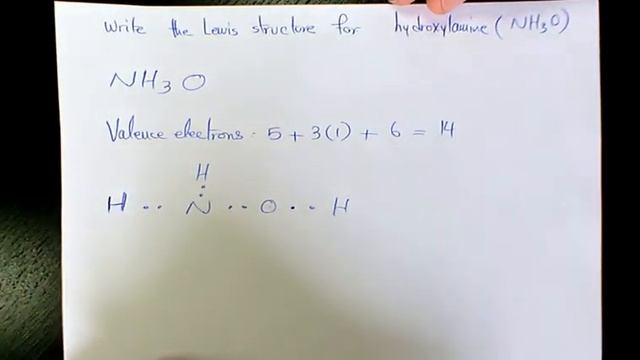 Write the Lewis structure for hydroxylamine (NH3O)
NH3O
Valence electrons: 5 + 3(1) + 6 = 14
H
:
H .. N .. O .. H